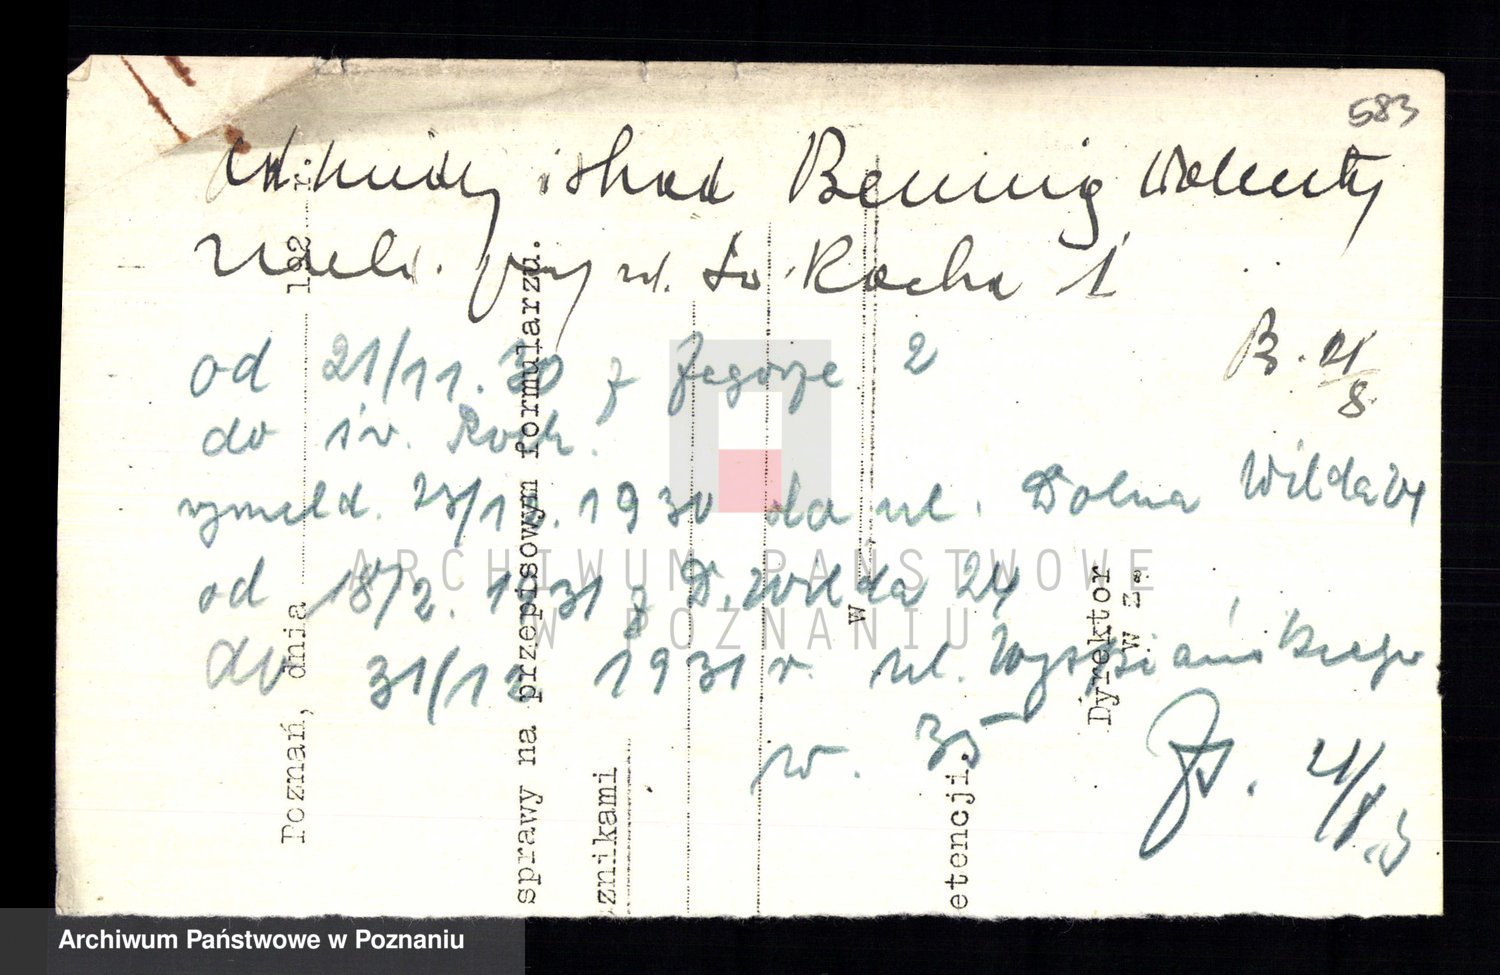 583
i skąd Bennig Walenty
ul. św Rocha 1
B. 4/8
od 21/11.30 z Zegrze 2
do św. Roch.
wymeld. 23/12. 1930 do ul. Dolna Wilda 24
od 18/2. 1931 z D. Wilda 24
do 31/12 1931 r. ul. Wyspiańskiego
35
4/8.
Poznań, dnia 192
sprawy na przepisowym formularzu.
znikami
w
etencji,
Dyrektor
w z.
ARCHIWUM PAŃSTWOWE
W POZNANIU
Archiwum Państwowe w Poznaniu